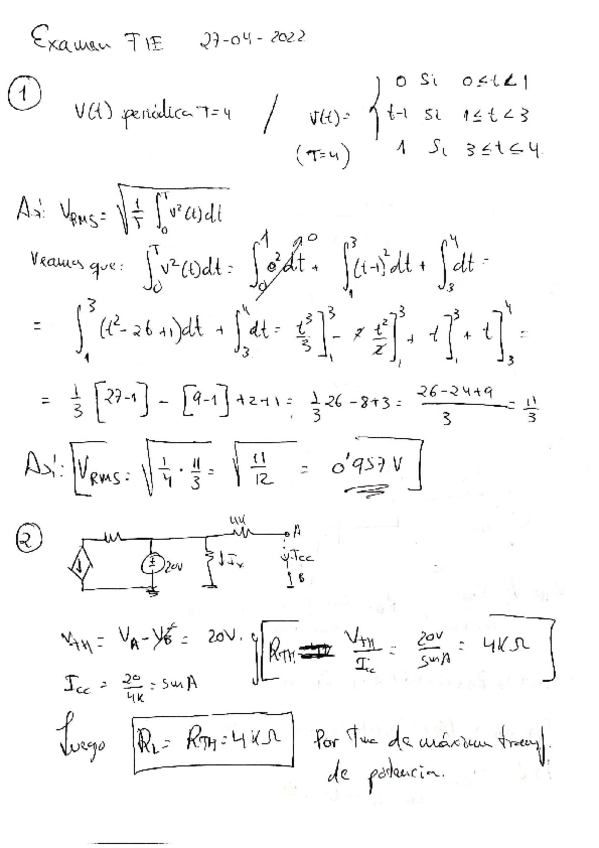 Examen FIE 27-04-2022
1
V(t) periódica T=4 / V(t)= { 0 Si 0≤t<1
t-1 si 1≤t<3
(T=4) 1 Si 3≤t≤4
Así: V_RMS = √(1/T ∫₀ᵀ v²(t)dt)
Veamos que: ∫₀ᵀ v²(t)dt = ∫₀¹ 0²dt + ∫₁³ (t-1)²dt + ∫₃⁴ dt =
= ∫₁³ (t²-2t+1)dt + ∫₃⁴ dt = t³/3]₁³ - 2 t²/2]₁³ + t]₁³ + t]₃⁴ =
= 1/3 [27-1] - [9-1] + 2+1 = 1/3 26-8+3 = (26-24+9)/3 = 11/3
Así: [V_RMS = √(1/4 · 11/3) = √(11/12) = 0'957 V]
2
4K A
20V Ix Icc
B
V_TH = V_A - V_B = 20V. [R_TH = V_TH/Icc = 20V/5mA = 4KΩ]
Icc = 20/4K = 5mA
Luego R_L = R_TH = 4KΩ Por Tma de máxima transf.
de potencia.